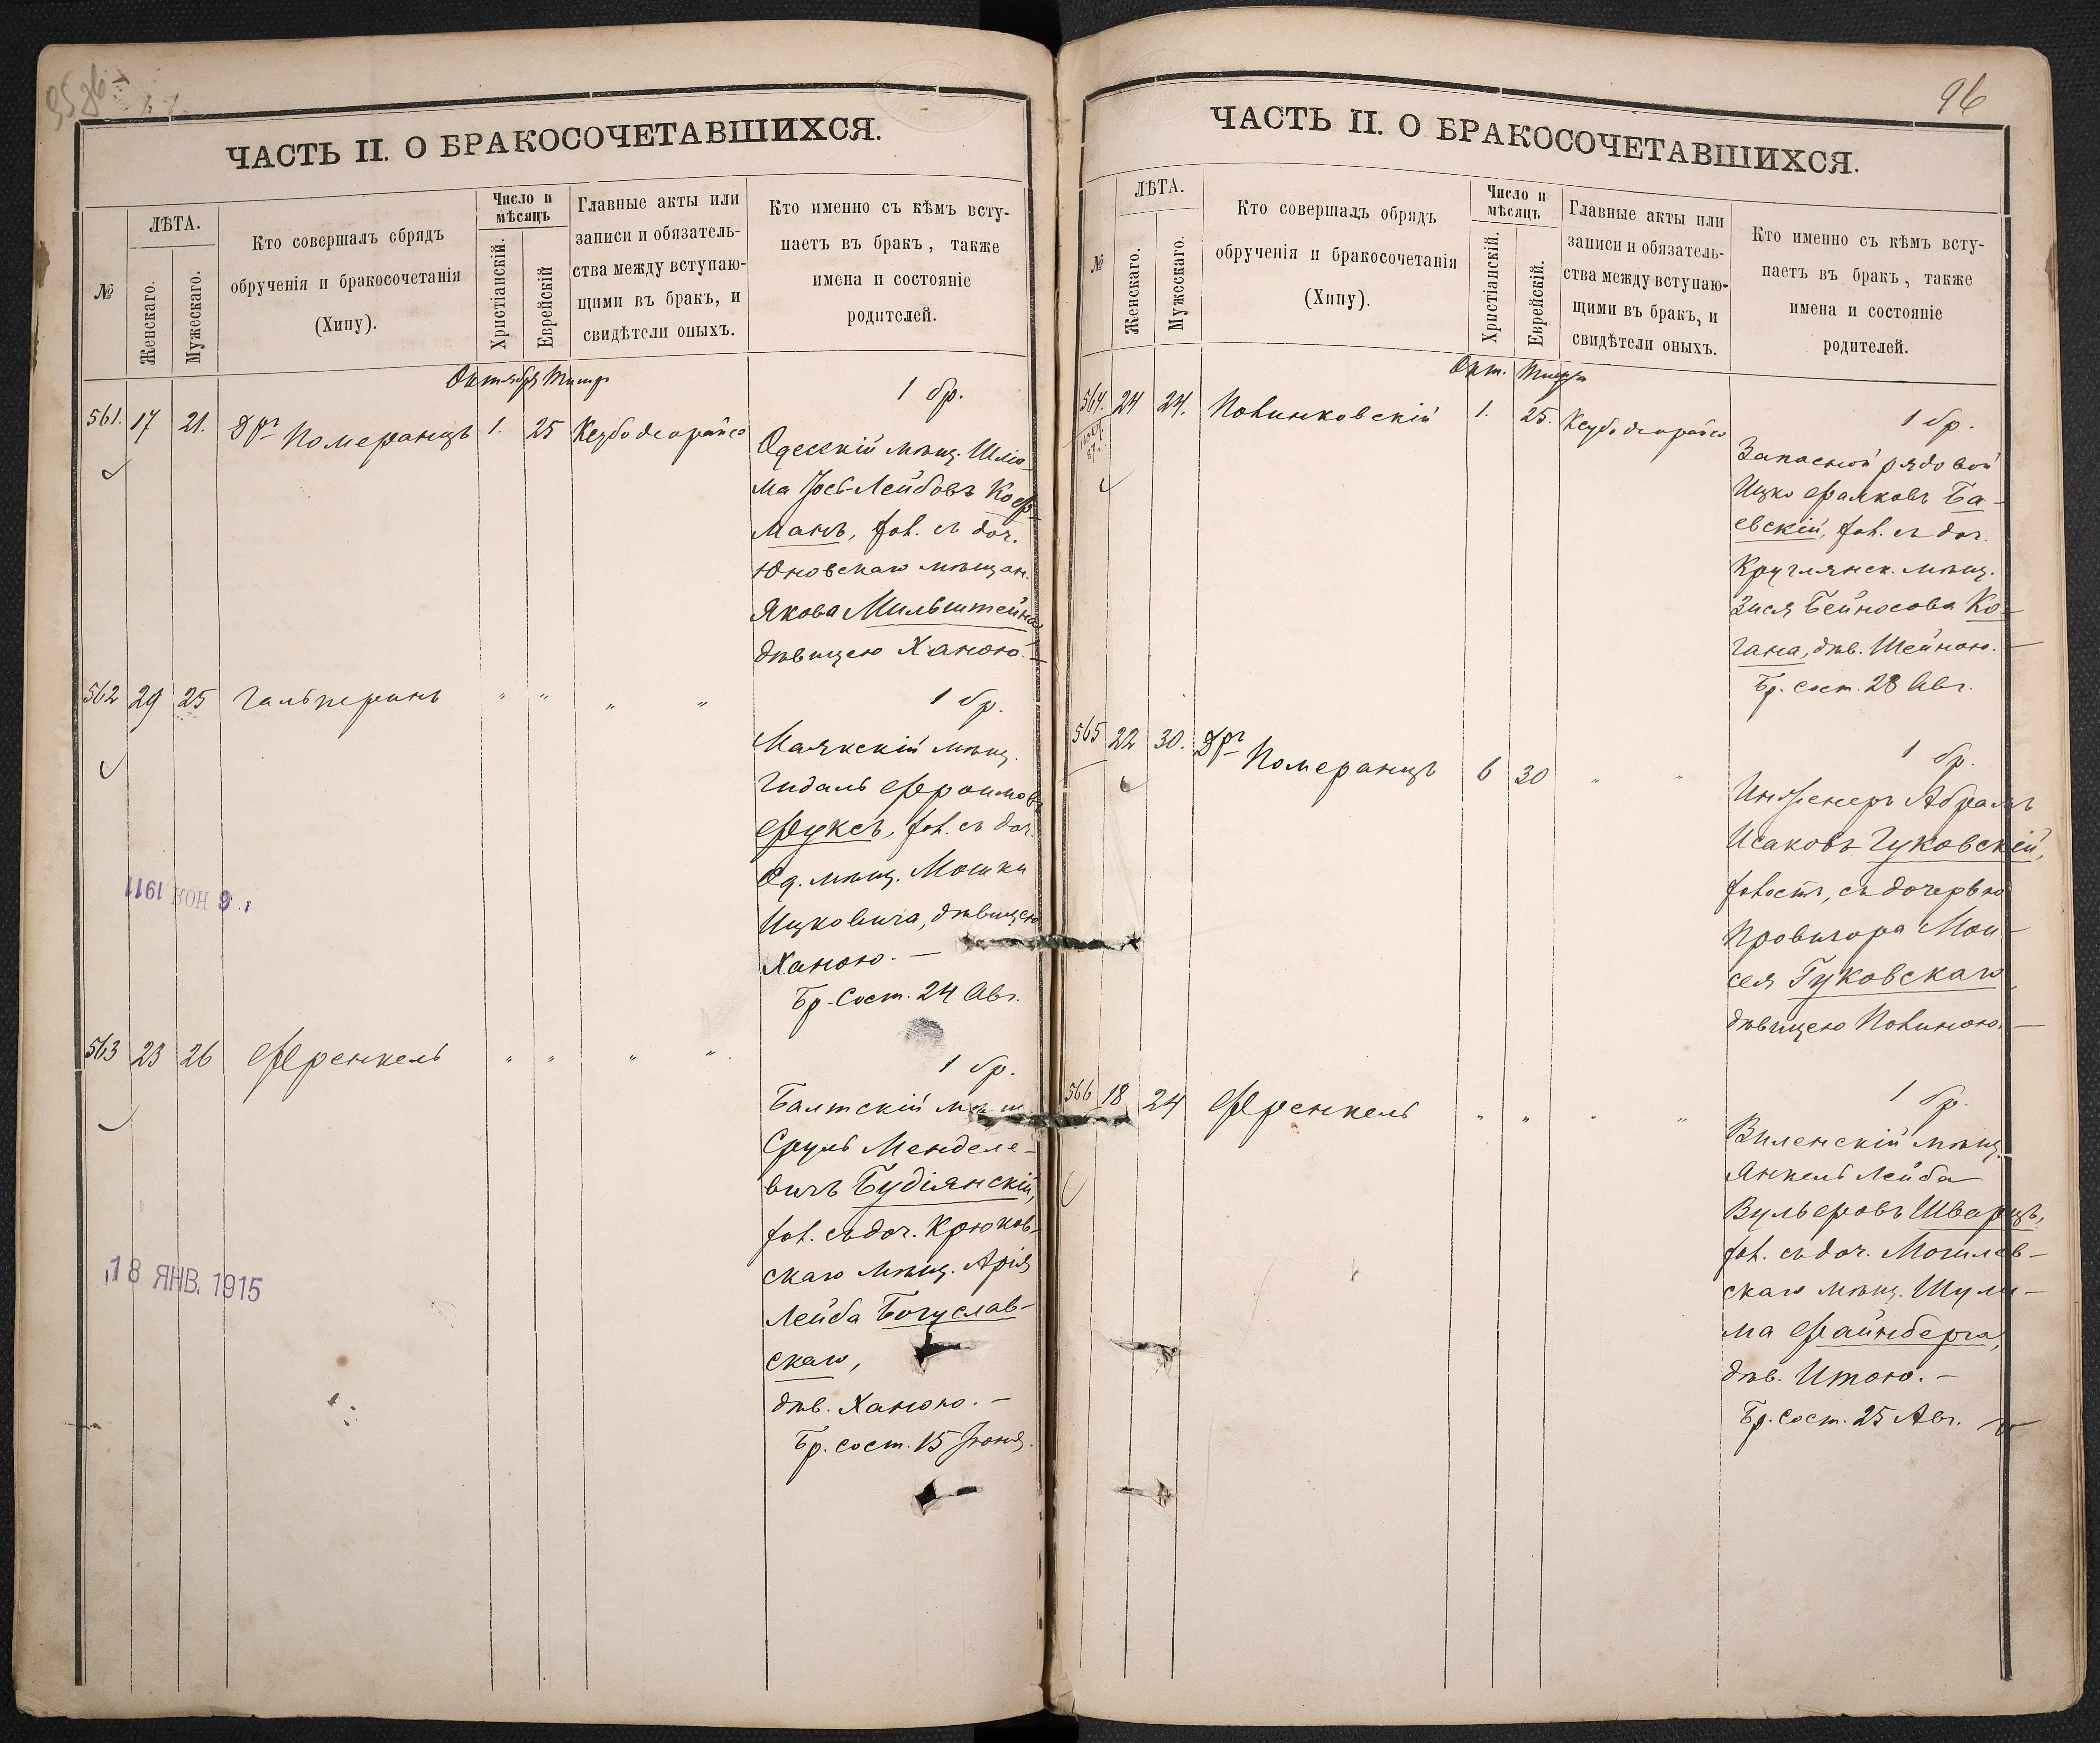 ЧАСТЬ II. О БРАКОСОЧЕТАВШИХСЯ.
№
ЛѢТА.
Женскаго.
Мужескаго.
Кто совершалъ обрядъ
обрученія и бракосочетанія
(Хипу).
Число и
мѣсяцъ
Христіанскій.
Еврейскій
Главные акты или
записи и обязатель-
ства между вступаю-
щими въ бракъ, и
свидѣтели оныхъ.
Кто именно съ кѣмъ всту-
паетъ въ бракъ, также
имена и состояніе
родителей.
Октября
561. 17 21. Др Померанцъ 1. 25
1 бр.
Одесскій мѣщ. Шлio-
ма Іось-Лейбовъ Коф-
манъ, хол. съ доч.
Юновскаго мѣщан.
Якова Мильштейна
дѣвицею Ханою. —
562 29 25 Гальперинъ " " " "
1 бр.
Маякскій мѣщ.
Гидаль Фроимовъ
Фуксъ, хол. съ доч.
Од. мѣщ. Мошки
Ицковича, дѣвицею
Ханою. —
Бр. Сост. 24 Авг.
6 НОЯ 1911
563 23 26 Френкель " " " "
1 бр.
Балтскій мѣщ
Сруль Менделе-
вичъ Будіянскій,
хол. съ доч. Крюков-
скаго мѣщ. Арія
Лейба Богуслав-
скаго,
дѣв. Ханою. —
Бр. сост. 15 Іюня.
18 ЯНВ. 1915
96
ЧАСТЬ II. О БРАКОСОЧЕТАВШИХСЯ.
№
ЛѢТА.
Женскаго.
Мужескаго.
Кто совершалъ обрядъ
обрученія и бракосочетанія
(Хипу).
Число и
мѣсяцъ
Христіанскій.
Еврейскій.
Главные акты или
записи и обязатель-
ства между вступаю-
щими въ бракъ, и
свидѣтели оныхъ.
Кто именно съ кѣмъ всту-
паетъ въ бракъ, также
имена и состояніе
родителей.
Окт.
564. 24 24. Полинковскій 1. 25.
1 бр.
Запасной рядовой
Ицко Фалковъ Ба-
евскій, хол. съ доч.
Круглянск. мѣщ.
Зися Бейносова Ко-
гана, дѣв. Шейною. —
Бр. сост. 28 Авг.
565 22 30. Др Померанцъ 6 30 " "
1 бр.
Инженеръ Абрамъ
Исаковъ Гуковскій,
холост, съ дочерью
Провизора Мои-
сея Гуковскаго
дѣвицею Полиною. —
566 18 24 Френкель " " " "
1 бр.
Виленскій мѣщ.
Янкель Лейба
Вульфовъ Шварцъ,
хол. съ доч. Могилев-
скаго мѣщ. Шули-
ма Файнберга,
дѣв. Итою. —
Бр. сост. 25 Авг.